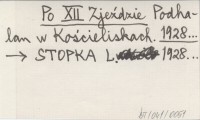 Po XII Zjeździe Podha-
lan w Kościeliskach. 1928...
→ STOPKA L. 1928...